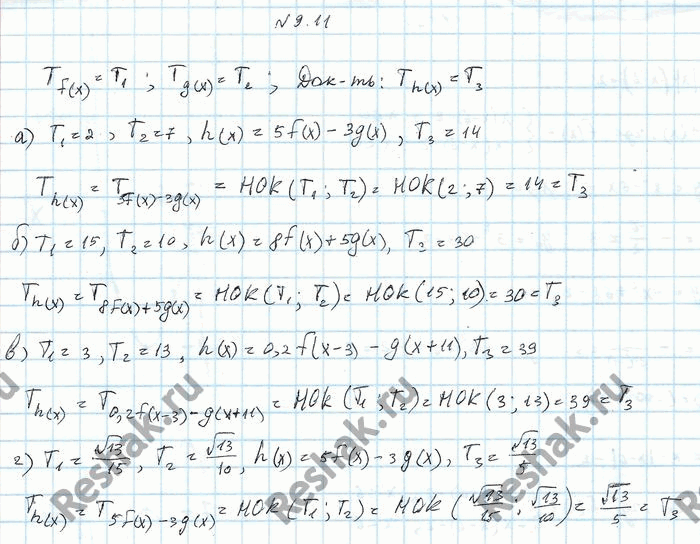 № 9.11
T_f(x) = T₁ ; T_g(x) = T₂ ; Док-ть: T_h(x) = T₃
а) T₁ = 2 , T₂ = 7 , h(x) = 5f(x) - 3g(x) , T₃ = 14
T_h(x) = T_5f(x)-3g(x) = НОК (T₁ ; T₂) = НОК (2 ; 7) = 14 = T₃
б) T₁ = 15, T₂ = 10 , h(x) = 8f(x) + 5g(x), T₃ = 30
T_h(x) = T_8f(x)+5g(x) = НОК (T₁ ; T₂) = НОК (15 ; 10) = 30 = T₃
в) T₁ = 3 , T₂ = 13 , h(x) = 0,2 f(x-3) - g(x+11), T₃ = 39
T_h(x) = T_0,2f(x-3)-g(x+11) = НОК (T₁ ; T₂) = НОК (3 ; 13) = 39 = T₃
г) T₁ = √13/15 , T₂ = √13/10 , h(x) = 5f(x) - 3g(x) , T₃ = √13/5
T_h(x) = T_5f(x)-3g(x) = НОК (T₁ ; T₂) = НОК (√13/15 ; √13/10) = √13/5 = T₃
Reshak.ru
Reshak.ru
Reshak.ru